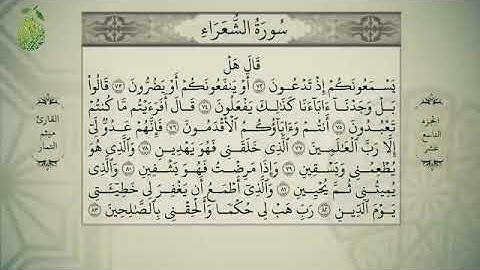 سُورَةُ الشُّعَرَاءِ
قَالَ هَلْ
يَسْمَعُونَكُمْ إِذْ تَدْعُونَ ﴿٧٢﴾ أَوْ يَنفَعُونَكُمْ أَوْ يَضُرُّونَ ﴿٧٣﴾ قَالُوا۟
بَلْ وَجَدْنَآ ءَابَآءَنَا كَذَٰلِكَ يَفْعَلُونَ ﴿٧٤﴾ قَالَ أَفَرَءَيْتُم مَّا كُنتُمْ
تَعْبُدُونَ ﴿٧٥﴾ أَنتُمْ وَءَابَآؤُكُمُ ٱلْأَقْدَمُونَ ﴿٧٦﴾ فَإِنَّهُمْ عَدُوٌّ لِّىٓ
إِلَّا رَبَّ ٱلْعَٰلَمِينَ ﴿٧٧﴾ ٱلَّذِى خَلَقَنِى فَهُوَ يَهْدِينِ ﴿٧٨﴾ وَٱلَّذِى هُوَ
يُطْعِمُنِى وَيَسْقِينِ ﴿٧٩﴾ وَإِذَا مَرِضْتُ فَهُوَ يَشْفِينِ ﴿٨٠﴾ وَٱلَّذِى
يُمِيتُنِى ثُمَّ يُحْيِينِ ﴿٨١﴾ وَٱلَّذِىٓ أَطْمَعُ أَن يَغْفِرَ لِى خَطِيٓـَٔتِى
يَوْمَ ٱلدِّينِ ﴿٨٢﴾ رَبِّ هَبْ لِى حُكْمًا وَأَلْحِقْنِى بِٱلصَّٰلِحِينَ ﴿٨٣﴾
الجزء
التاسع
عشر
القارئ
ميثم
التمار